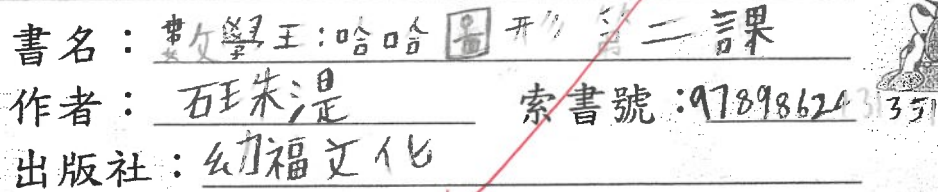 書名：數學王:哈哈圖形 第二課
作者：石珠湜 索書號：978986243351
出版社：幼福文化